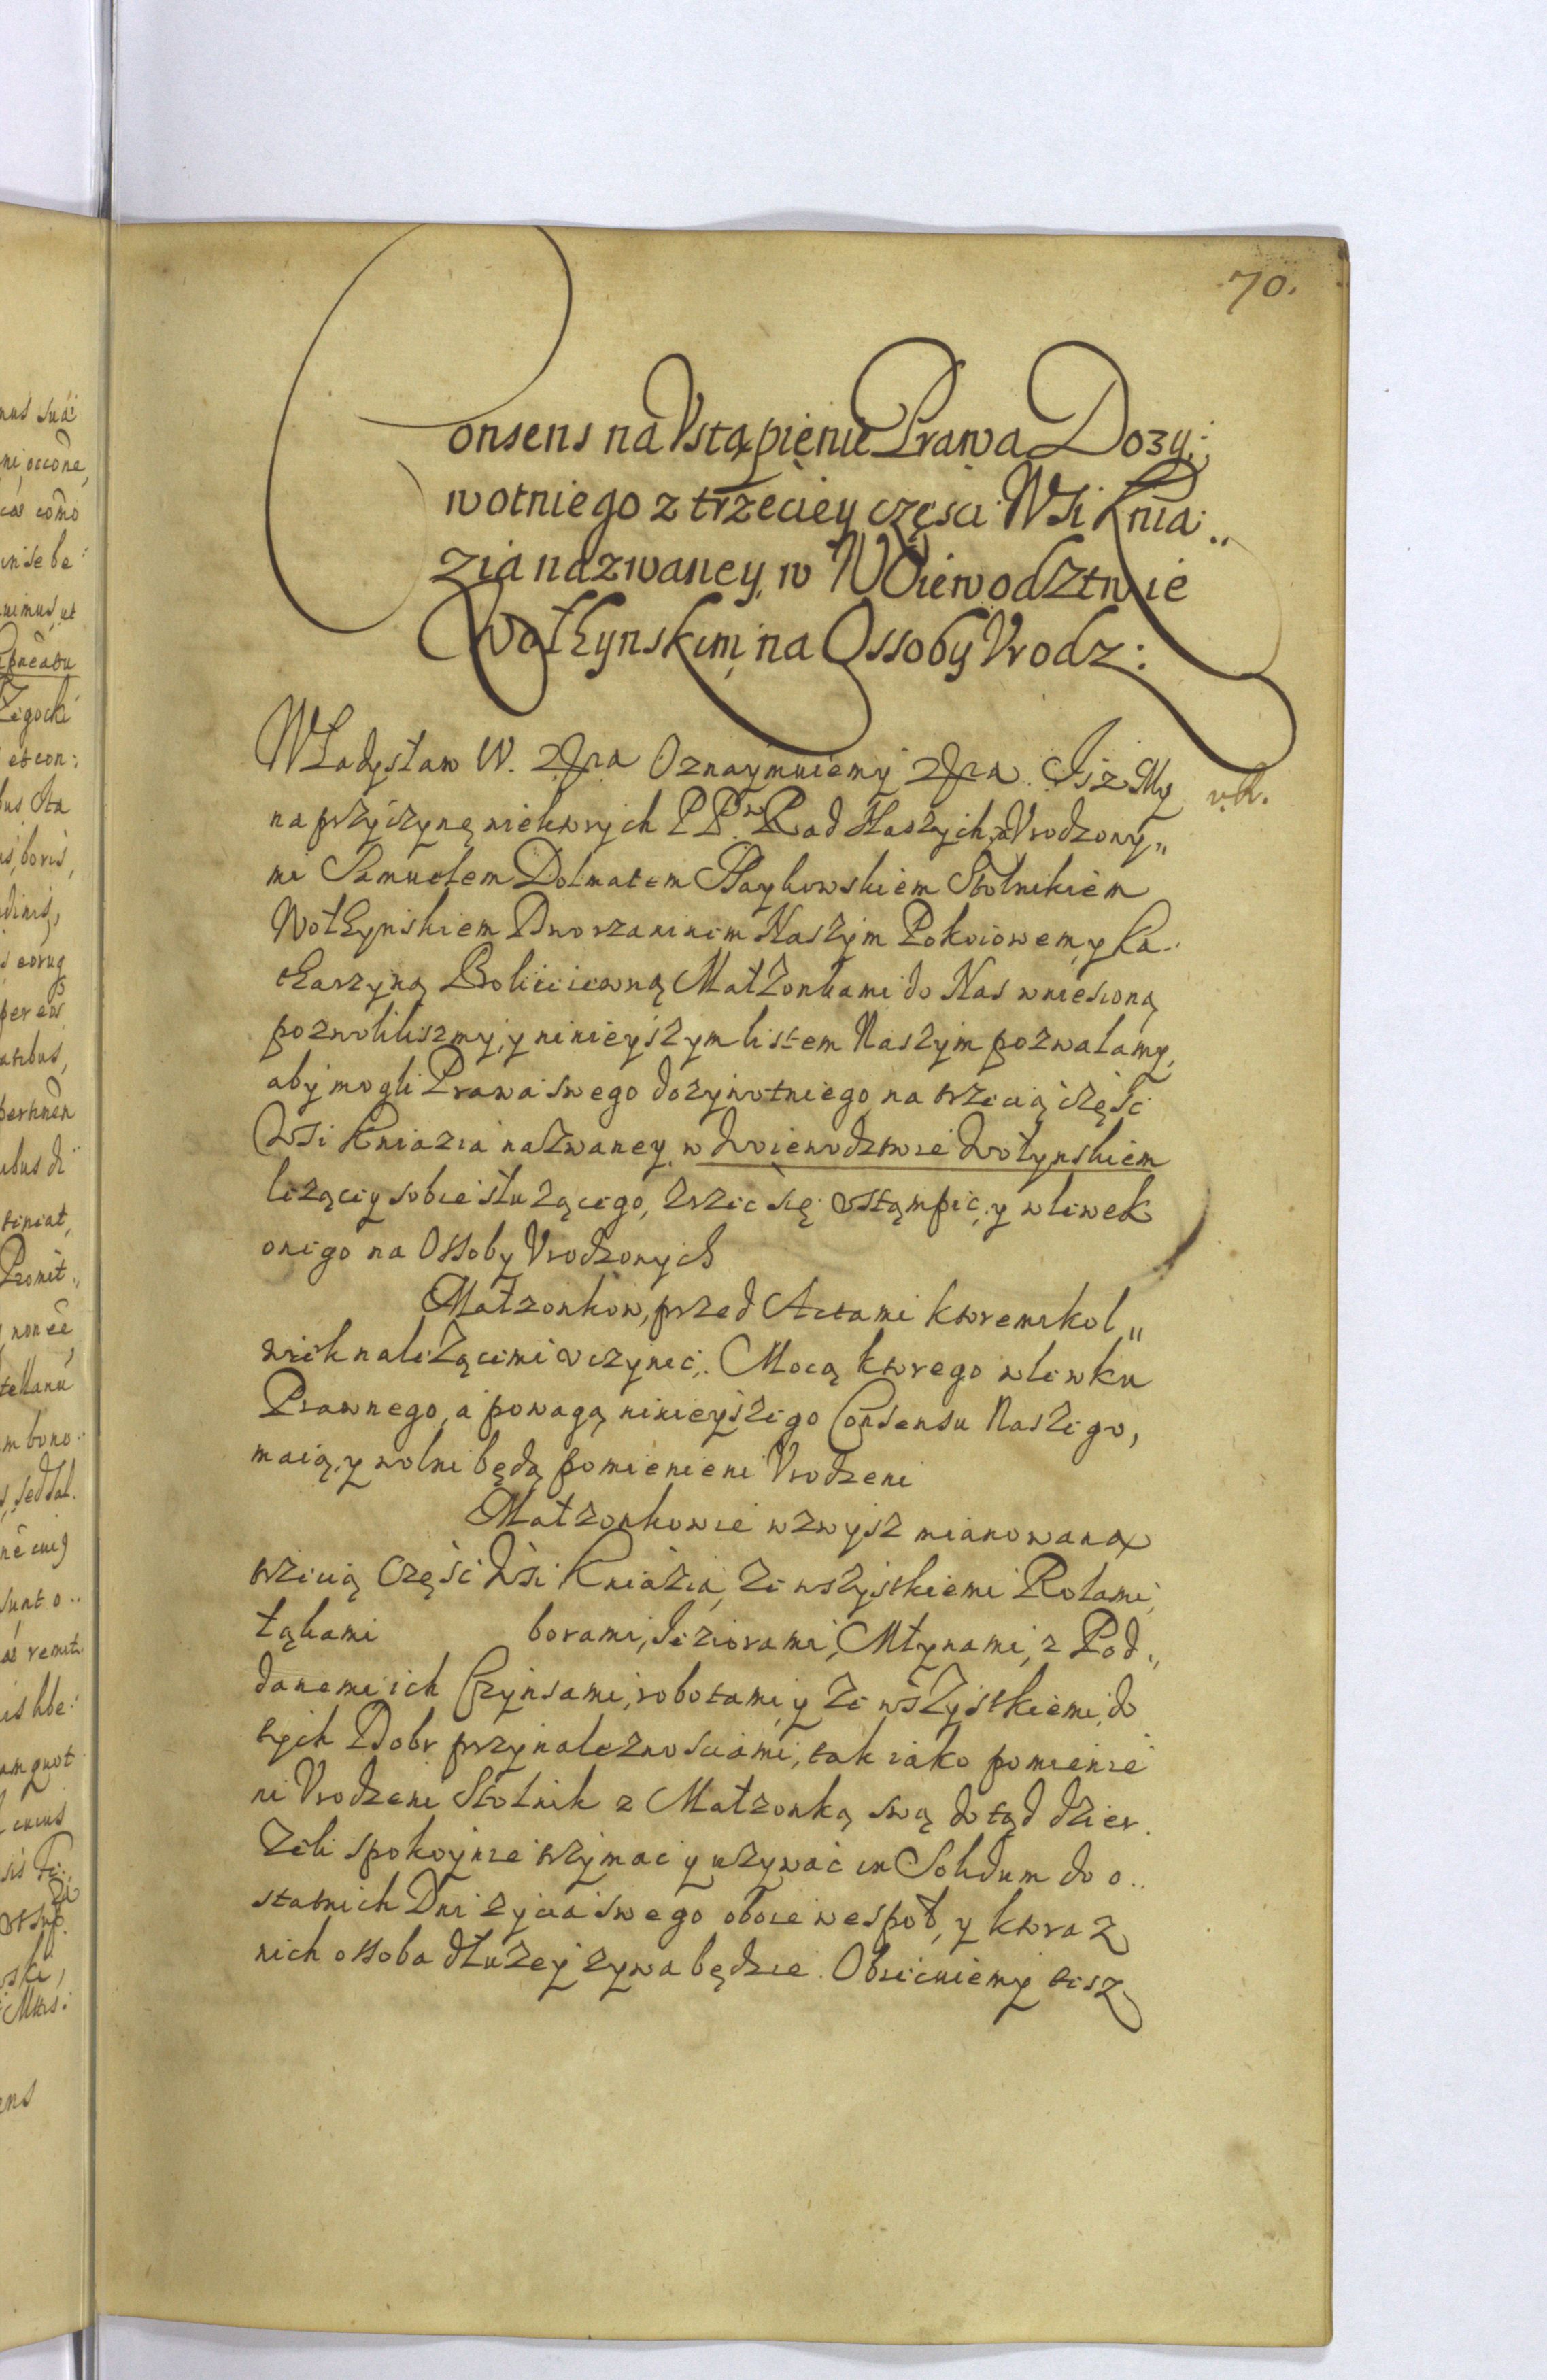 70.
Consens na Vstąpienie Prawa Dozy:
wotniego z trzeciey części Wsi Knia
zia nazwaney, w Woiewodztwie
Wołhynskim, na Ossoby Vrodz:
Władysław IV. Oznaymuiemy Isz My
na przyczynę niektorych PP. Rad Naszych, Vrodzony,,
mi Samuelem Dolmatem Stolnikiem
Wołhynskiem Dworzaninem Naszym Pokoiowem, y Ka
tharzyną Małżonkami do Nas wniesioną
pozwoliliszmy, y ninieyszym listem Naszym pozwalamy,
aby mogli Prawa swego dozywotniego na trzecią część
Wsi Kniazia nazwaney w Woiewodztwie Wołynskiem
leżącey sobie służącego, zrzec się vstąmpić, y wlewek
onego na Ossoby Vrodzonych
Małzonkow, przed Actami ktoremikol,,
wiek należącemi vczynić. Mocą ktorego wlewku
Prawnego, a powagą ninieyszego Consensu Naszego,
maią, y wolni będą pomienieni Vrodzeni
Małzonkowie wzwysz mianowaną
trzecią część Wsi Kniazia, ze wszystkiemi Rolami,
łąkami borami, Jeziorami, Młynami, z Pod,,
danemi ich Czynsami, robotami, y ze wszystkiemi, do
tych Dobr przynaleznosciami, tak iako pomienie
ni Vrodzeni Stolnik z Małzonką swą dotąd dzier
żeli spokoynie trzymać y uzywać in Solidum do o
statnich Dni zycia swego oboie wespoł, y ktora z
nich ossoba dłużey zywa będzie. Obiecuiemy tesz